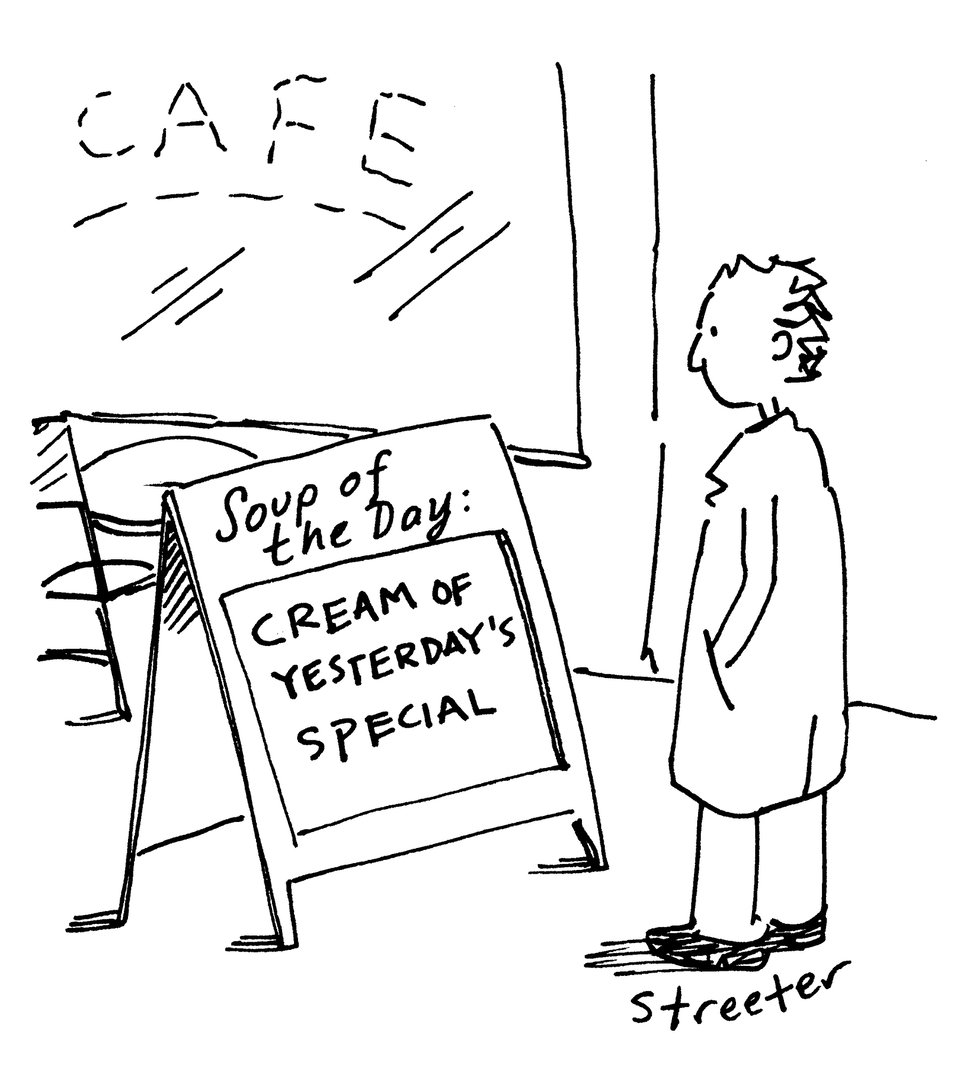 CAFE
Soup of
the Day:
CREAM OF
YESTERDAY'S
SPECIAL
Streeter